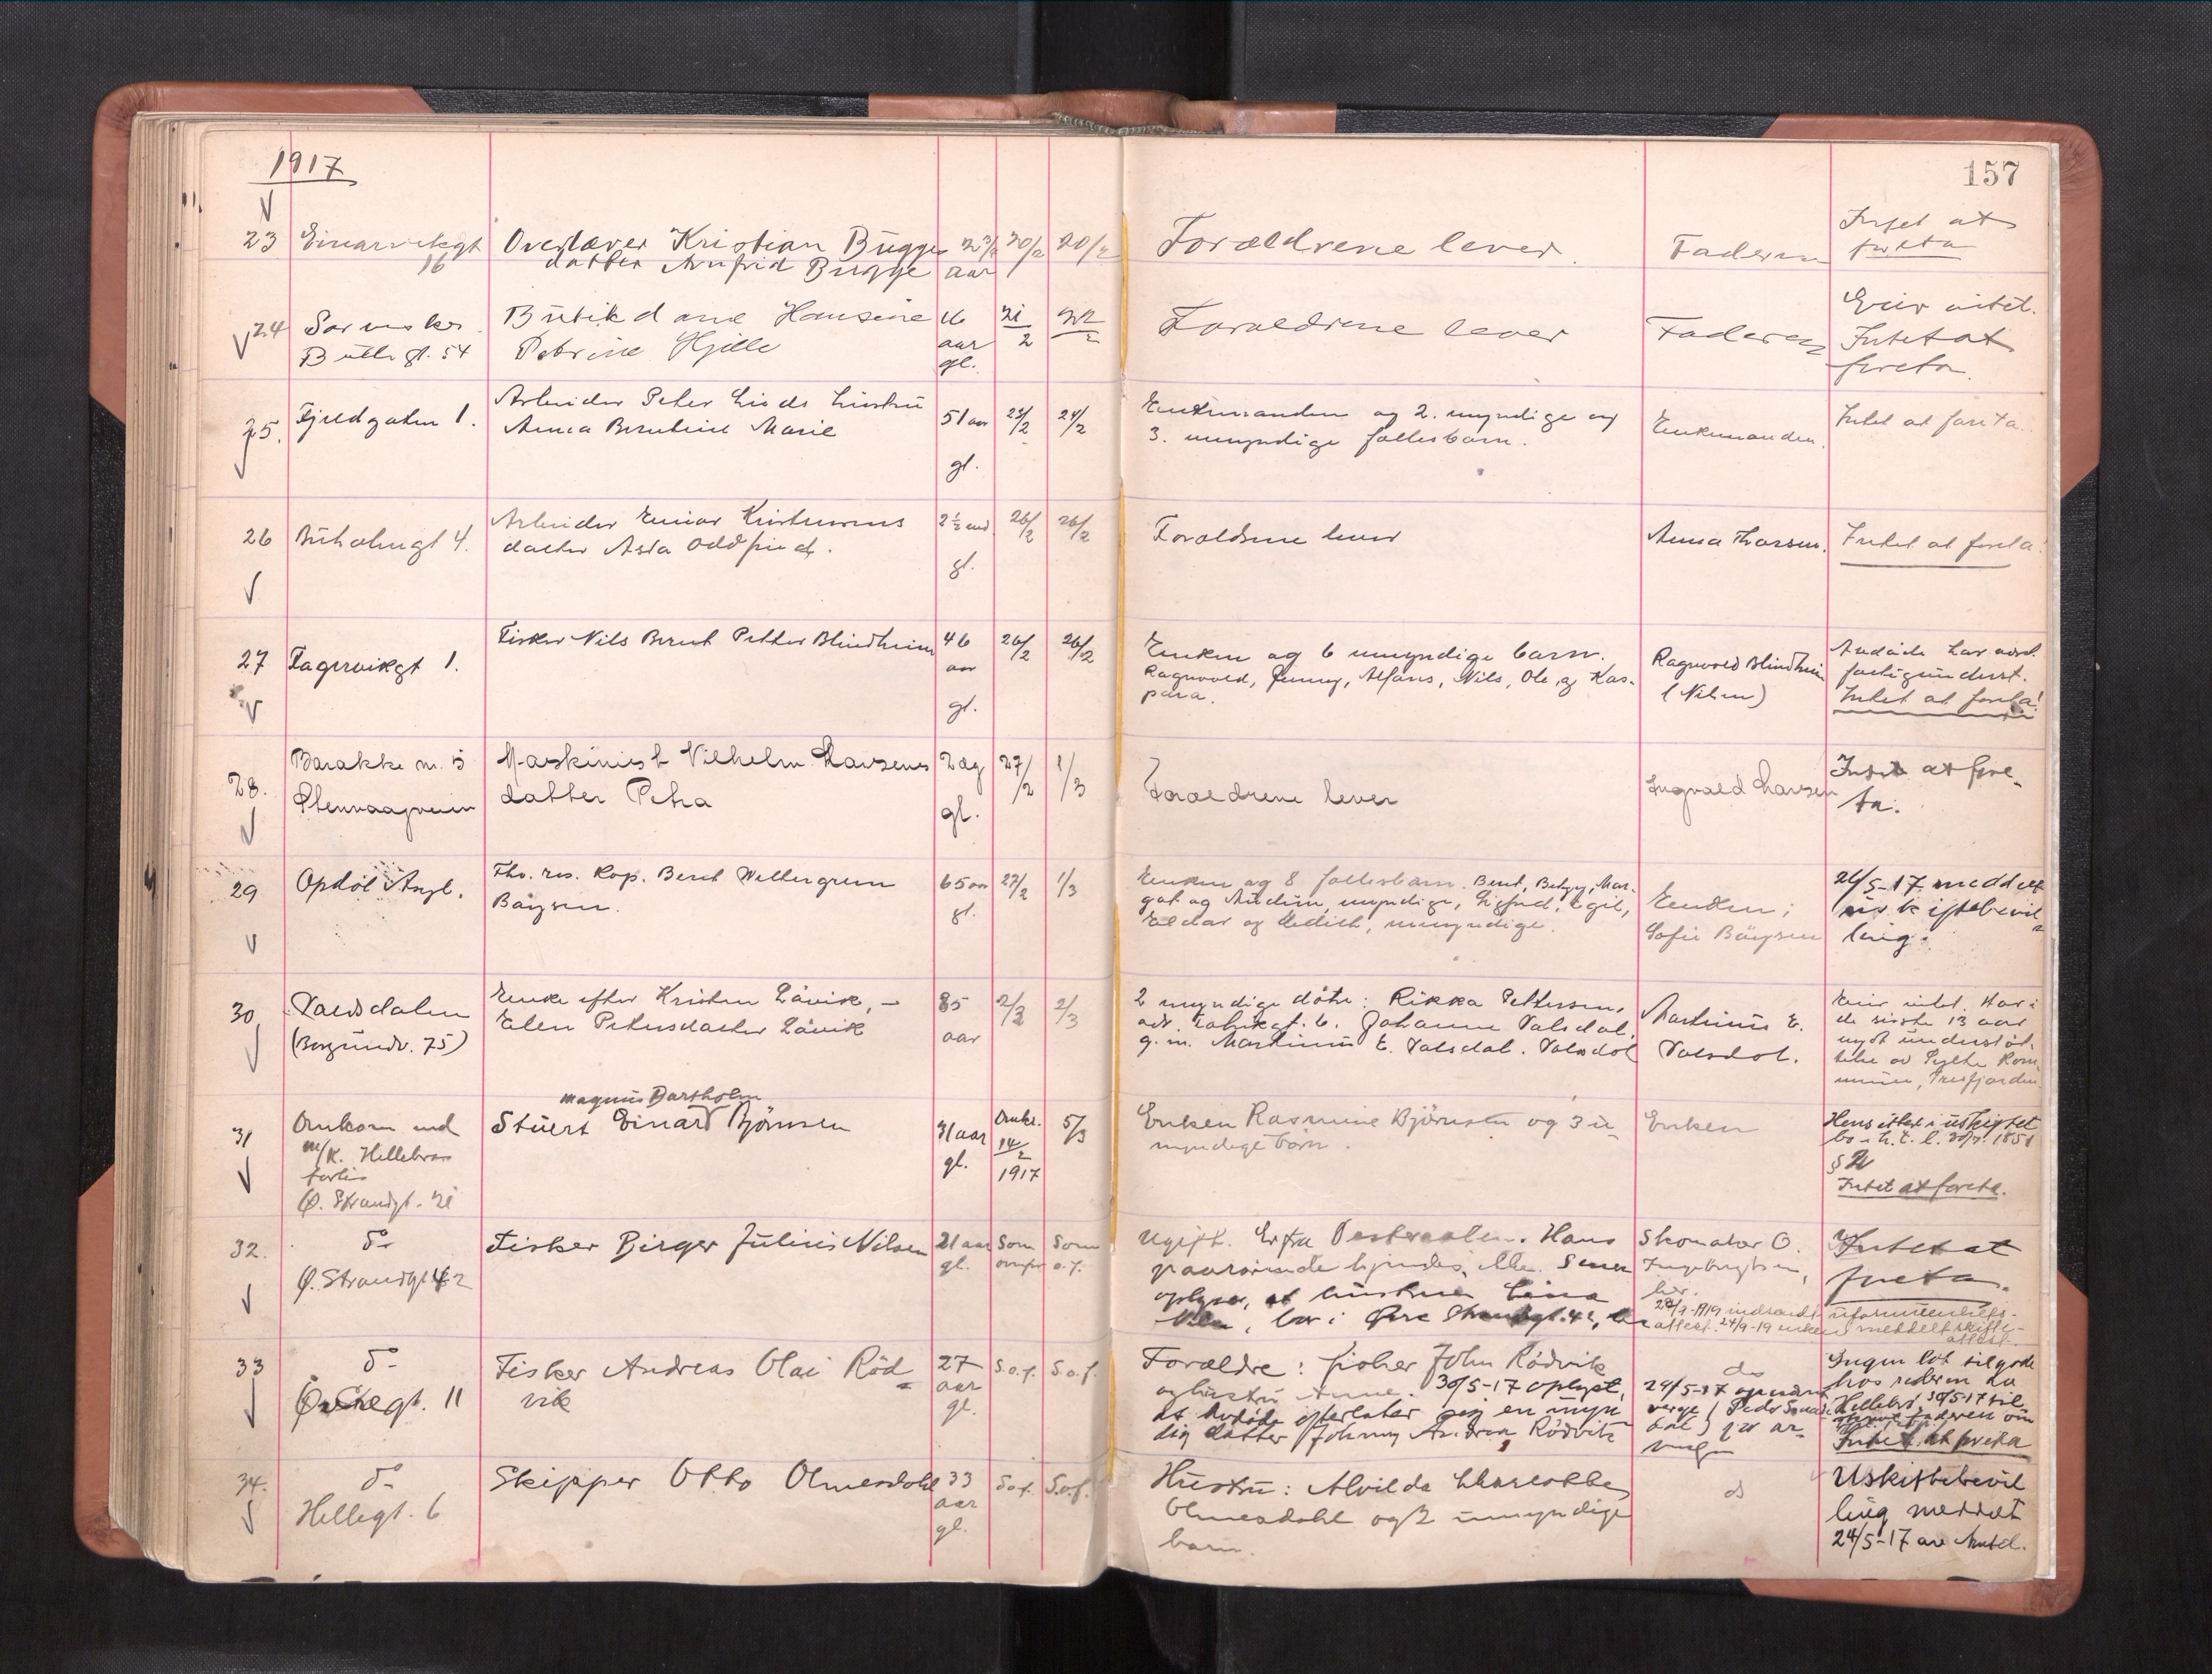 1917
157
23 Einarvikgt 16
Overlærer Kristian Bugges
datter Arnfrid Bugge
aar
20/2 20/2
Forældrene lever.
Faderen
Intet at
foreta
24
Bullsgt. 54
Butikdame Hansine
Petrine Hjelle
16
aar
gl.
21/2 22/2
Forældrene lever
Faderen
Eier intet.
Intet at
foreta.
25. Fjeldgaten 1.
Arbeider Peter Lieds hustru
Anna Berntine Marie
51 aar
gl.
23/2 24/2
Enkemanden og 2. myndige og
3. umyndige fællesbarn.
Enkemanden.
Intet at foreta.
26 Buholmgt 4.
Arbeider Einar Kristensens
datter Asta Oddfrid.
2½ md
gl.
26/2 26/2
Forældrene lever
Anna Thorsen.
Intet at foreta!
27 Fagervikgt 1.
Fisker Nils Bernt Petter Blindheim
46
aar
gl.
26/2 26/2
Enken og 6 umyndige barn.
Ragnvald, Jenny, Alfons, Nils, Ole og Kas-
para.
Ragnvald Blindheim
(Nilsen)
Avdøde har været
fattigunderst.
Intet at foreta!
28. Barakke m. 5
Stenvaagveien
Maskinist Vilhelm Larsens
datter Petra
2 dg
gl.
27/2 1/3
Forældrene lever
Ingvald Larsen
Intet at fore-
ta.
29 Opdøl Angl.
Fhv. res. Kap. Bernt Wettergreen
Bøysen.
65 aar
gl.
27/2 1/3
Enken og 8 fællesbarn. Bernt, Betzy, Mar-
got og Audun, myndige, Sigfred, Egil,
Eldar og Hedith, umyndige.
Enken;
Sofie Bøysen
26/5-17 meddelt
uskiftebevil-
ling.
30 Valsdalen
(Borgundv. 75)
Enke efter Kristen Løvik, -
Elen Petersdatter Løvik
85
aar
2/3 2/3
2 myndige døtre: Rikka Pettersen,
adr. Fabrikgt. 6. Johanne Valsdal,
g. m. Martinus E. Valsdal. Valsdal
Martinus E.
Valsdal.
Eier intet. Har i
de sidste 13 aar
nydt understøt-
telse av Sylte Kom-
mune, Tresfjorden.
31 Omkom med
m/k. Hillebrand
forlis
Ø. Strandgt. 21
Magnus Bartholm
Stuert Einar Bjørnsen
31 aar
gl.
Omk.
14/2
1917
5/3
Enken Rasmine Bjørnsen og 3 u-
myndige barn.
Enken
Hensitter i uskiftet
bo i h. t. l. 30/7. 1851
§ 2
Intet at foreta.
32. do
Ø. Strandgt 42
Fisker Birger Julius Nilsen
21 aar
gl.
Som
ovenfor
Som
o. f.
Ugift. Er fra Vesteraalen. Hans
paarørende kjendes ikke. Senere
oplyses, at hustruen Lina
bor i Øvre Strandgt. 42, her
Skomaker O.
Ingebrigtsen,
her.
Intet at
foreta.
1919 indsendt uformuenhets-
attest. 24/9-19 enken meddelt skifte-
attest.
33 do
Øvregt. 11
Fisker Andreas Olai Rød-
vik
27
aar
gl.
S.o.f. S.o.f.
Forældre: fisker John Rødvik
og hustru Anne. 30/5-17 oplyst,
at avdøde efterlater sig en umyn-
dig datter Johnny Andrea Rødvik
do
24/5-17 opnævnt
verge
for ar-
vingen
Ingen lot tilgode
hos rederen av
Hillebrd. 30/5-17 til-
skrevet faderen om
Intet at foreta
34. do
Hellegt. 6
Skipper Otto Olmesdahl
33
aar
gl.
S.o.f. S.o.f.
Hustru: Alvilda Charlotte
Olmesdahl og 2 umyndige
barn.
do
Uskiftebevil
ling meddelt
24/5-17 av Amtet.